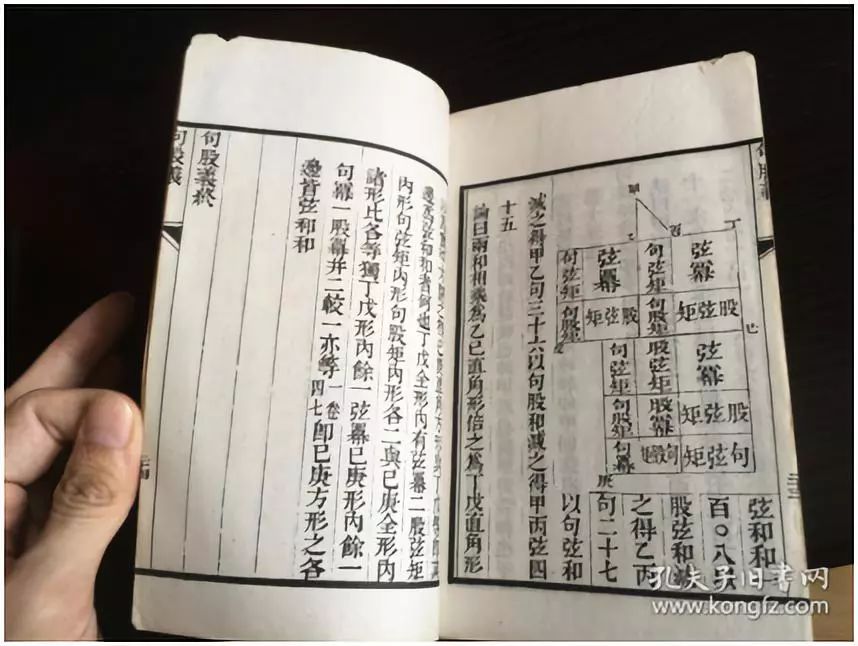 句股義
丁
弦冪
句弦矩
弦冪
句弦矩
股弦矩
句股矩
股弦矩
句股矩
己
弦冪
股弦矩
句弦矩
股弦矩
股冪
句股矩
句弦矩
句股矩
句冪
庚
弦和和一
百〇八以
股弦和減
之得乙丙
句二十七
以句弦和
減之得甲乙句三十六以句股和減之得甲丙弦四
十五
論曰兩和相乘為乙己直角形倍之為丁戊直角形
邊為弦和和者何也丁戊全形內有弦冪二股弦矩
內形句弦矩內形句股矩內形各二與己庚全形內
諸形比各等獨丁戊形內餘一弦冪己庚形內餘一
句冪一股冪并二較一亦等一卷四七即己庚方形之各
邊皆弦和和
句股義終
句股義
孔夫子旧书网
www.kongfz.com